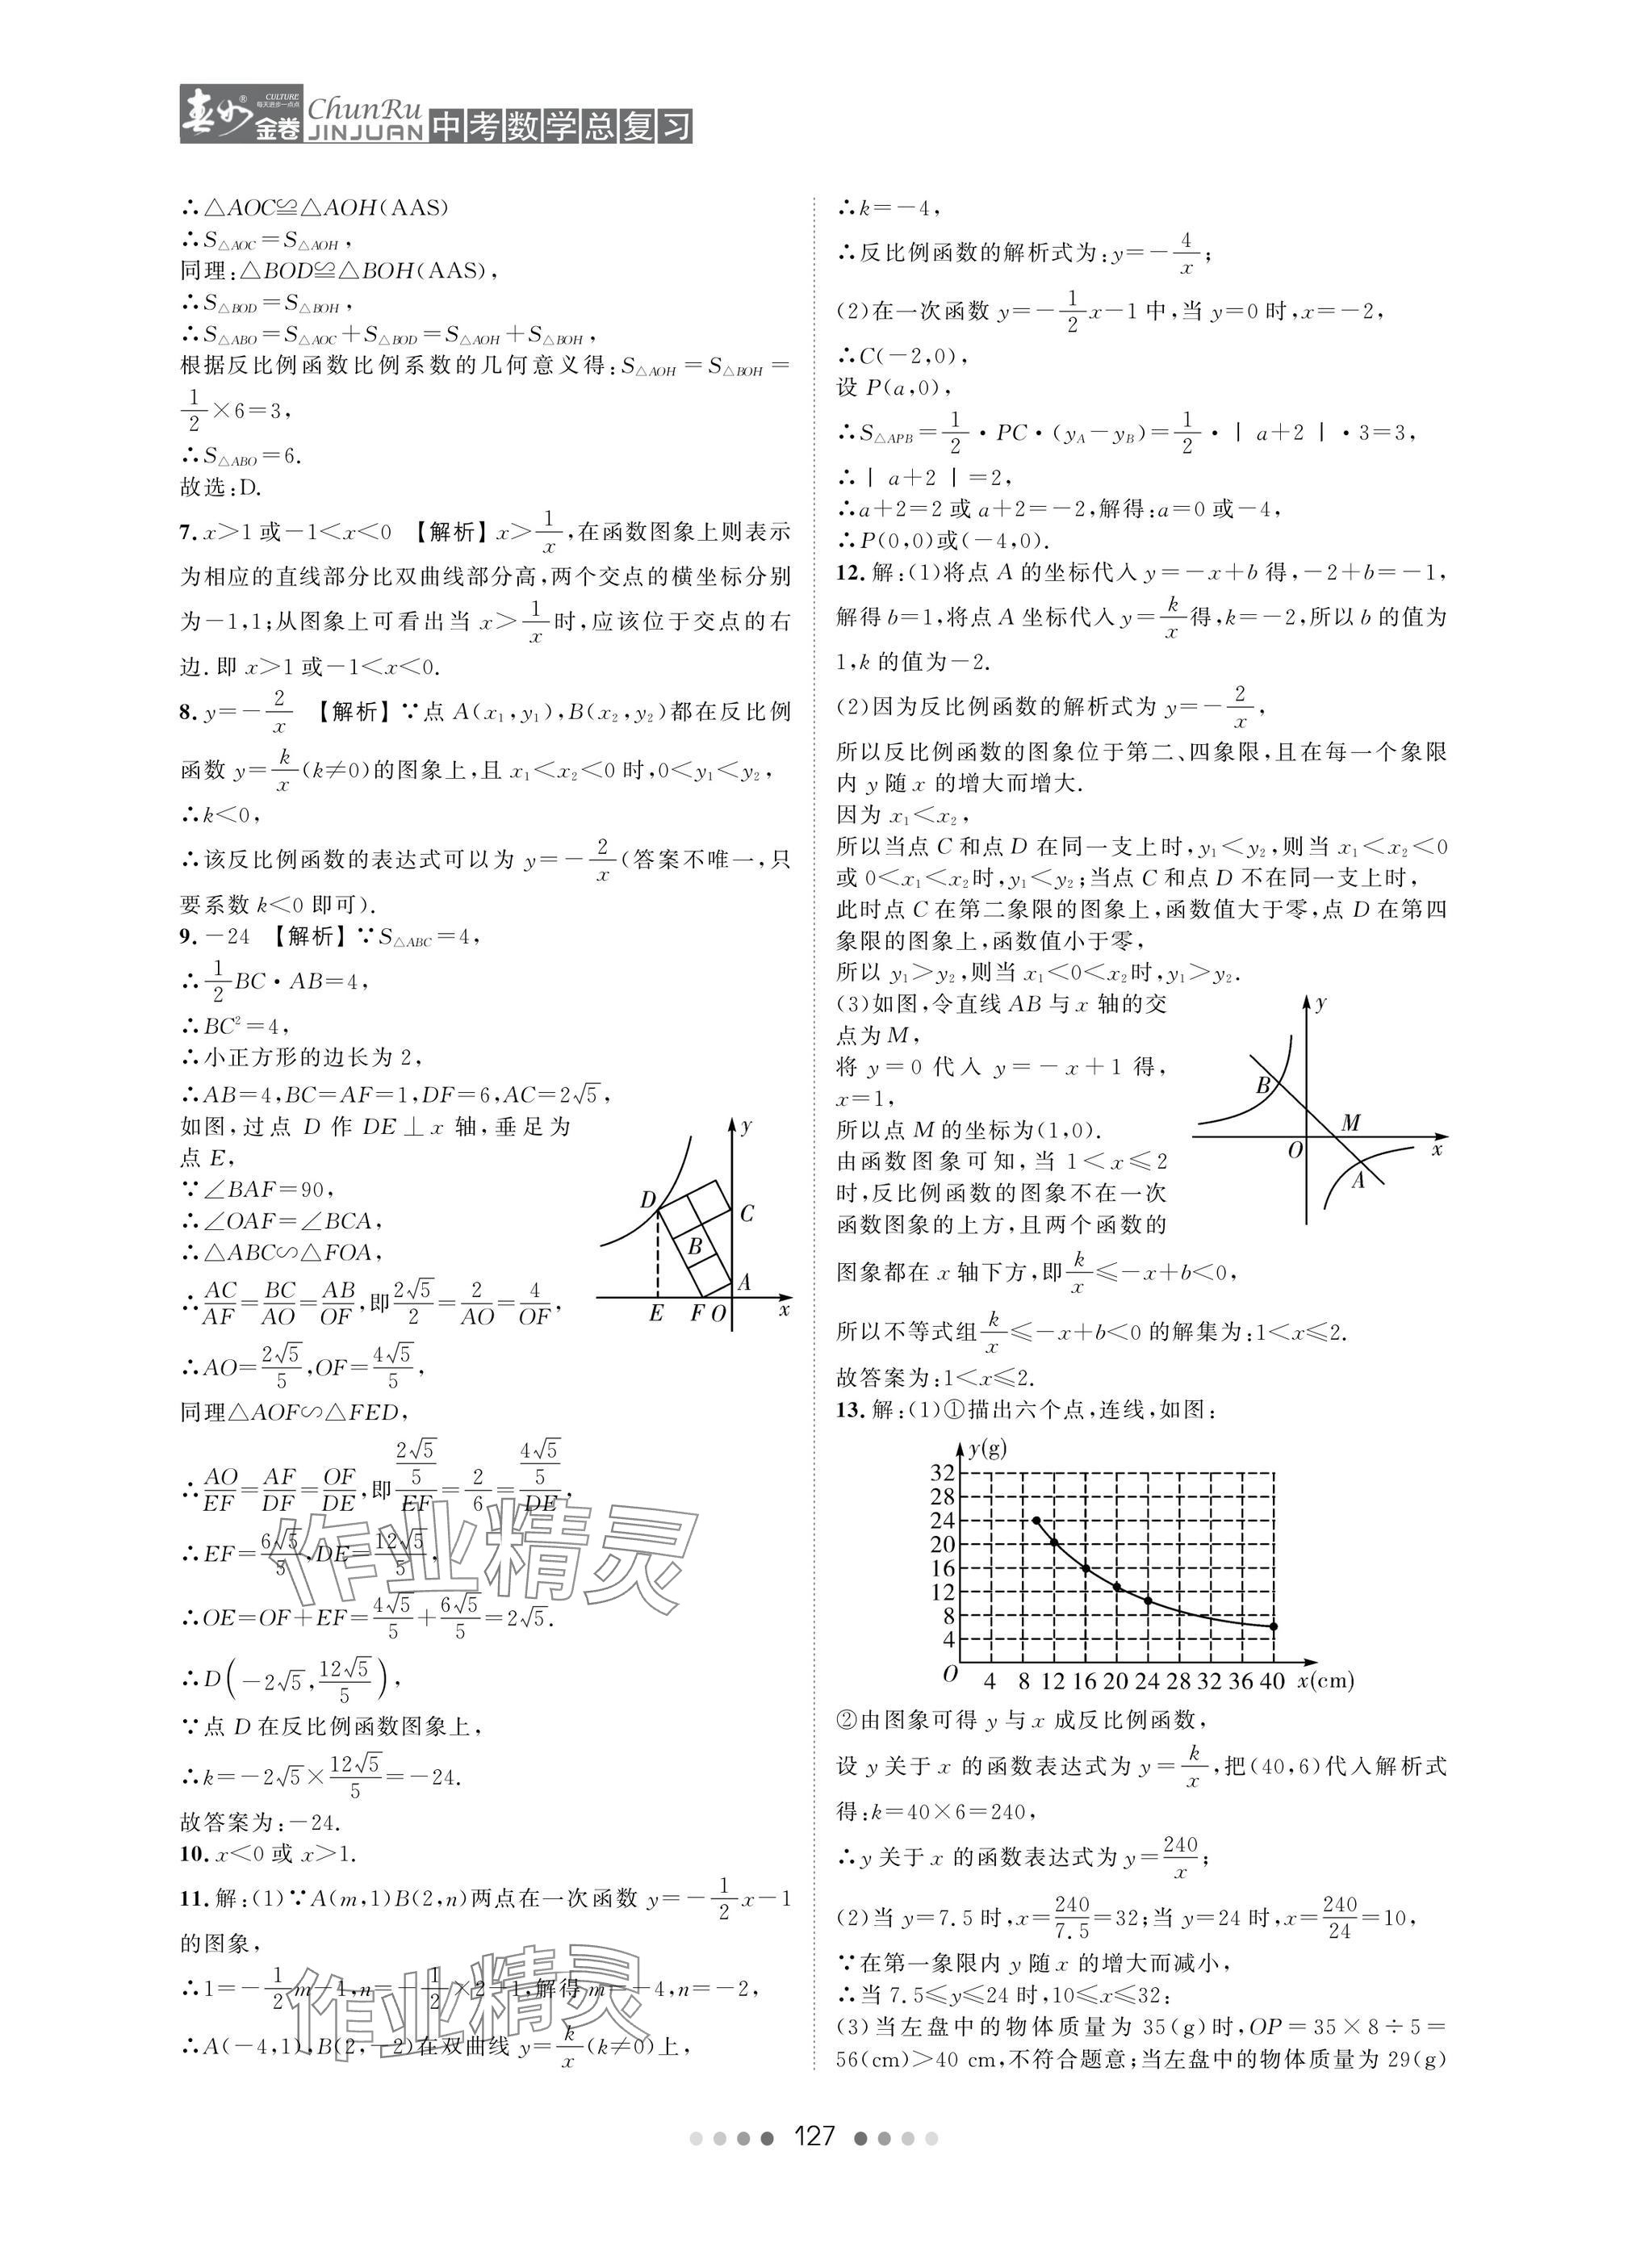 春如®金卷 CULTURE 每天进步一点点 ChunRu JINJUAN 中考数学总复习
∴△AOC≌△AOH(AAS)
∴S△AOC=S△AOH,
同理:△BOD≌△BOH(AAS),
∴S△BOD=S△BOH,
∴S△ABO=S△AOC+S△BOD=S△AOH+S△BOH,
根据反比例函数比例系数的几何意义得:S△AOH=S△BOH=
1/2×6=3,
∴S△ABO=6.
故选:D.
7. x>1或-1<x<0 【解析】x>1/x,在函数图象上则表示
为相应的直线部分比双曲线部分高,两个交点的横坐标分别
为-1,1;从图象上可看出当 x>1/x时,应该位于交点的右
边.即 x>1或-1<x<0.
8. y=-2/x 【解析】∵点 A(x₁,y₁),B(x₂,y₂)都在反比例
函数 y=k/x(k≠0)的图象上,且 x₁<x₂<0时,0<y₁<y₂,
∴k<0,
∴该反比例函数的表达式可以为 y=-2/x(答案不唯一,只
要系数 k<0即可).
9. -24 【解析】∵S△ABC=4,
∴1/2BC·AB=4,
∴BC²=4,
∴小正方形的边长为2,
∴AB=4,BC=AF=1,DF=6,AC=2√5,
如图,过点 D 作 DE⊥x 轴,垂足为
点 E,
∵∠BAF=90,
∴∠OAF=∠BCA,
∴△ABC∽△FOA,
∴AC/AF=BC/AO=AB/OF,即2√5/2=2/AO=4/OF,
∴AO=2√5/5,OF=4√5/5,
y
D
C
B
A
E F O x
同理△AOF∽△FED,
∴AO/EF=AF/DF=OF/DE,即(2√5/5)/EF=2/6=(4√5/5)/DE,
∴EF=6√5/5,DE=12√5/5,
∴OE=OF+EF=4√5/5+6√5/5=2√5.
∴D(-2√5,12√5/5),
∵点 D 在反比例函数图象上,
∴k=-2√5×12√5/5=-24.
故答案为:-24.
10. x<0或 x>1.
11. 解:(1)∵A(m,1)B(2,n)两点在一次函数 y=-1/2x-1
的图象,
∴1=-1/2m-1,n=-1/2×2-1,解得 m=-4,n=-2,
∴A(-4,1),B(2,-2)在双曲线 y=k/x(k≠0)上,
作业精灵
作业精灵
∴k=-4,
∴反比例函数的解析式为:y=-4/x;
(2)在一次函数 y=-1/2x-1中,当 y=0时,x=-2,
∴C(-2,0),
设 P(a,0),
∴S△APB=1/2·PC·(yA-yB)=1/2·|a+2|·3=3,
∴|a+2|=2,
∴a+2=2或 a+2=-2,解得:a=0或-4,
∴P(0,0)或(-4,0).
12. 解:(1)将点 A 的坐标代入 y=-x+b 得,-2+b=-1,
解得 b=1,将点 A 坐标代入 y=k/x得,k=-2,所以 b 的值为
1,k 的值为-2.
(2)因为反比例函数的解析式为 y=-2/x,
所以反比例函数的图象位于第二、四象限,且在每一个象限
内 y 随 x 的增大而增大.
因为 x₁<x₂,
所以当点 C 和点 D 在同一支上时,y₁<y₂,则当 x₁<x₂<0
或0<x₁<x₂时,y₁<y₂;当点 C 和点 D 不在同一支上时,
此时点 C 在第二象限的图象上,函数值大于零,点 D 在第四
象限的图象上,函数值小于零,
所以 y₁>y₂,则当 x₁<0<x₂时,y₁>y₂.
(3)如图,令直线 AB 与 x 轴的交
点为 M,
将 y=0 代入 y=-x+1 得,
x=1,
所以点 M 的坐标为(1,0).
由函数图象可知,当 1<x≤2
时,反比例函数的图象不在一次
函数图象的上方,且两个函数的
y
B
M
O x
A
图象都在 x 轴下方,即k/x≤-x+b<0,
所以不等式组k/x≤-x+b<0的解集为:1<x≤2.
故答案为:1<x≤2.
13. 解:(1)①描出六个点,连线,如图:
y(g)
32
28
24
20
16
12
8
4
O 4 8 12 16 20 24 28 32 36 40 x(cm)
②由图象可得 y 与 x 成反比例函数,
设 y 关于 x 的函数表达式为 y=k/x,把(40,6)代入解析式
得:k=40×6=240,
∴y 关于 x 的函数表达式为 y=240/x;
(2)当 y=7.5时,x=240/7.5=32;当 y=24时,x=240/24=10,
∵在第一象限内 y 随 x 的增大而减小,
∴当7.5≤y≤24时,10≤x≤32;
(3)当左盘中的物体质量为 35(g)时,OP=35×8÷5=
56(cm)>40 cm,不符合题意;当左盘中的物体质量为29(g)
127